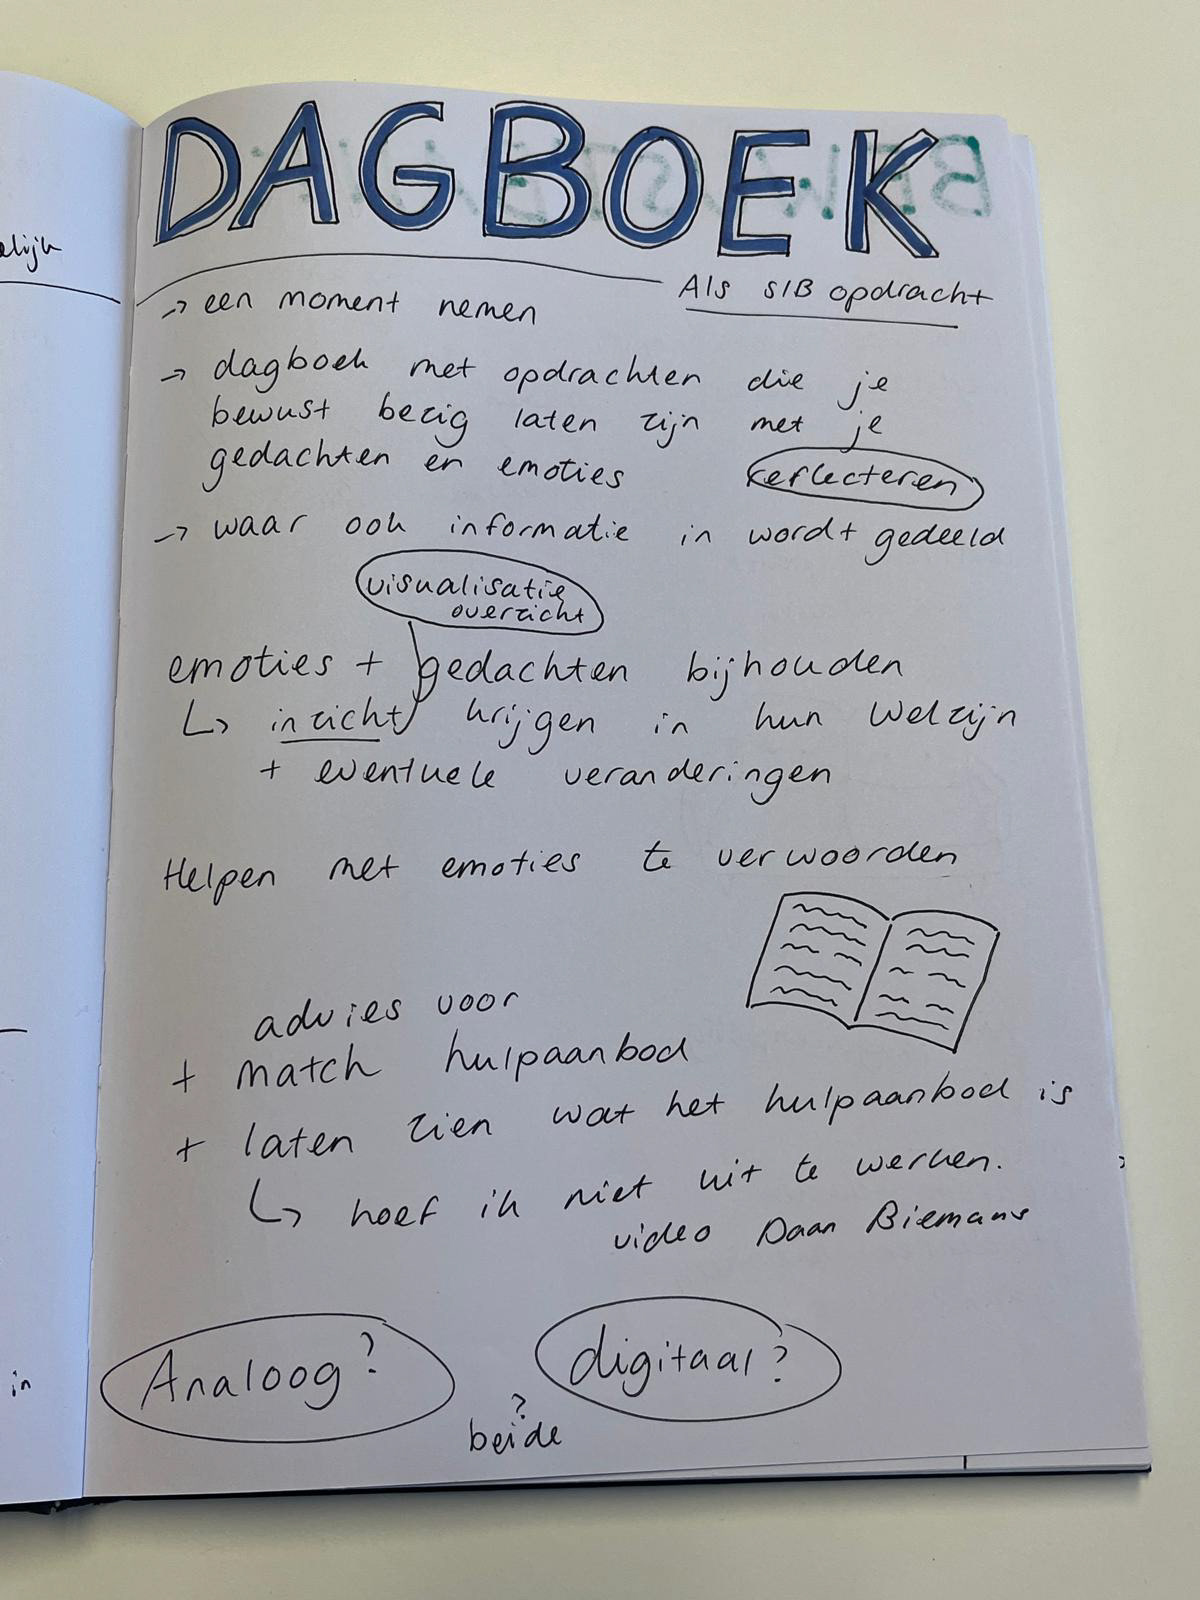 DAGBOEK
Als SIB opdracht
→ een moment nemen
→ dagboek met opdrachten die je
bewust bezig laten zijn met je
gedachten en emoties reflecteren
→ waar ook informatie in wordt gedeeld
visualisatie
overzicht
emoties + gedachten bijhouden
↳ inzicht krijgen in hun welzijn
+ eventuele veranderingen
Helpen met emoties te verwoorden
advies voor
+ match hulpaanbod
+ laten zien wat het hulpaanbod is
↳ hoef ik niet uit te werken.
video Daan Biemans
Analoog?
digitaal?
?
beide
elijk
in